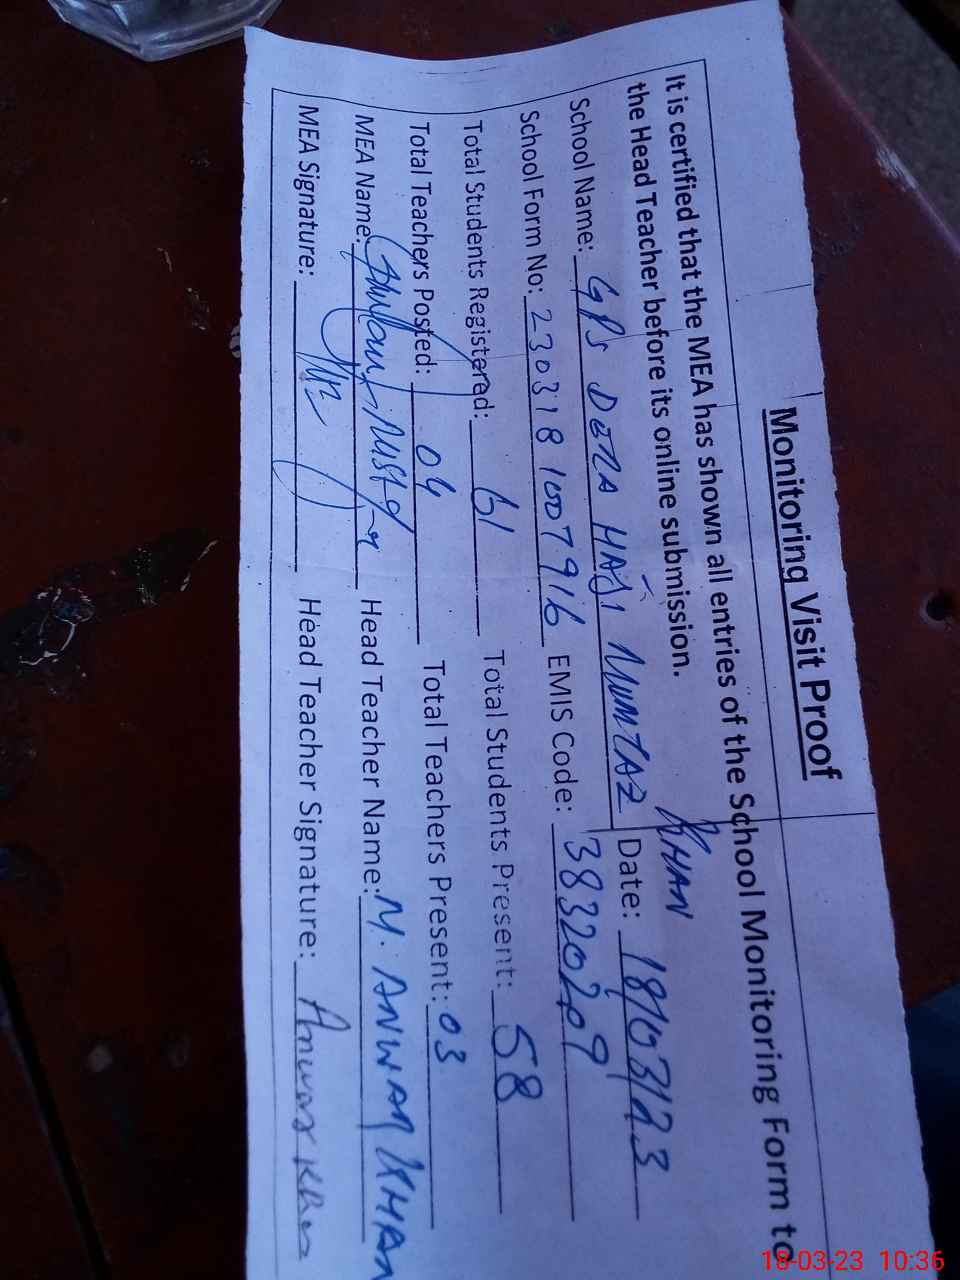 Monitoring Visit Proof
It is certified that the MEA has shown all entries of the School Monitoring Form to
the Head Teacher before its online submission.
School Name: GPS DERA HAJI MUMTAZ KHAN Date: 18/03/23
School Form No: 230318 1007916 EMIS Code: 38320209
Total Students Registered: 61 Total Students Present: 58
Total Teachers Posted: 04 Total Teachers Present: 03
MEA Name: Ghulam Mustafa Head Teacher Name: M. ANWAR KHAN
MEA Signature: Head Teacher Signature: Anwar Khan
18-03-23 10:36